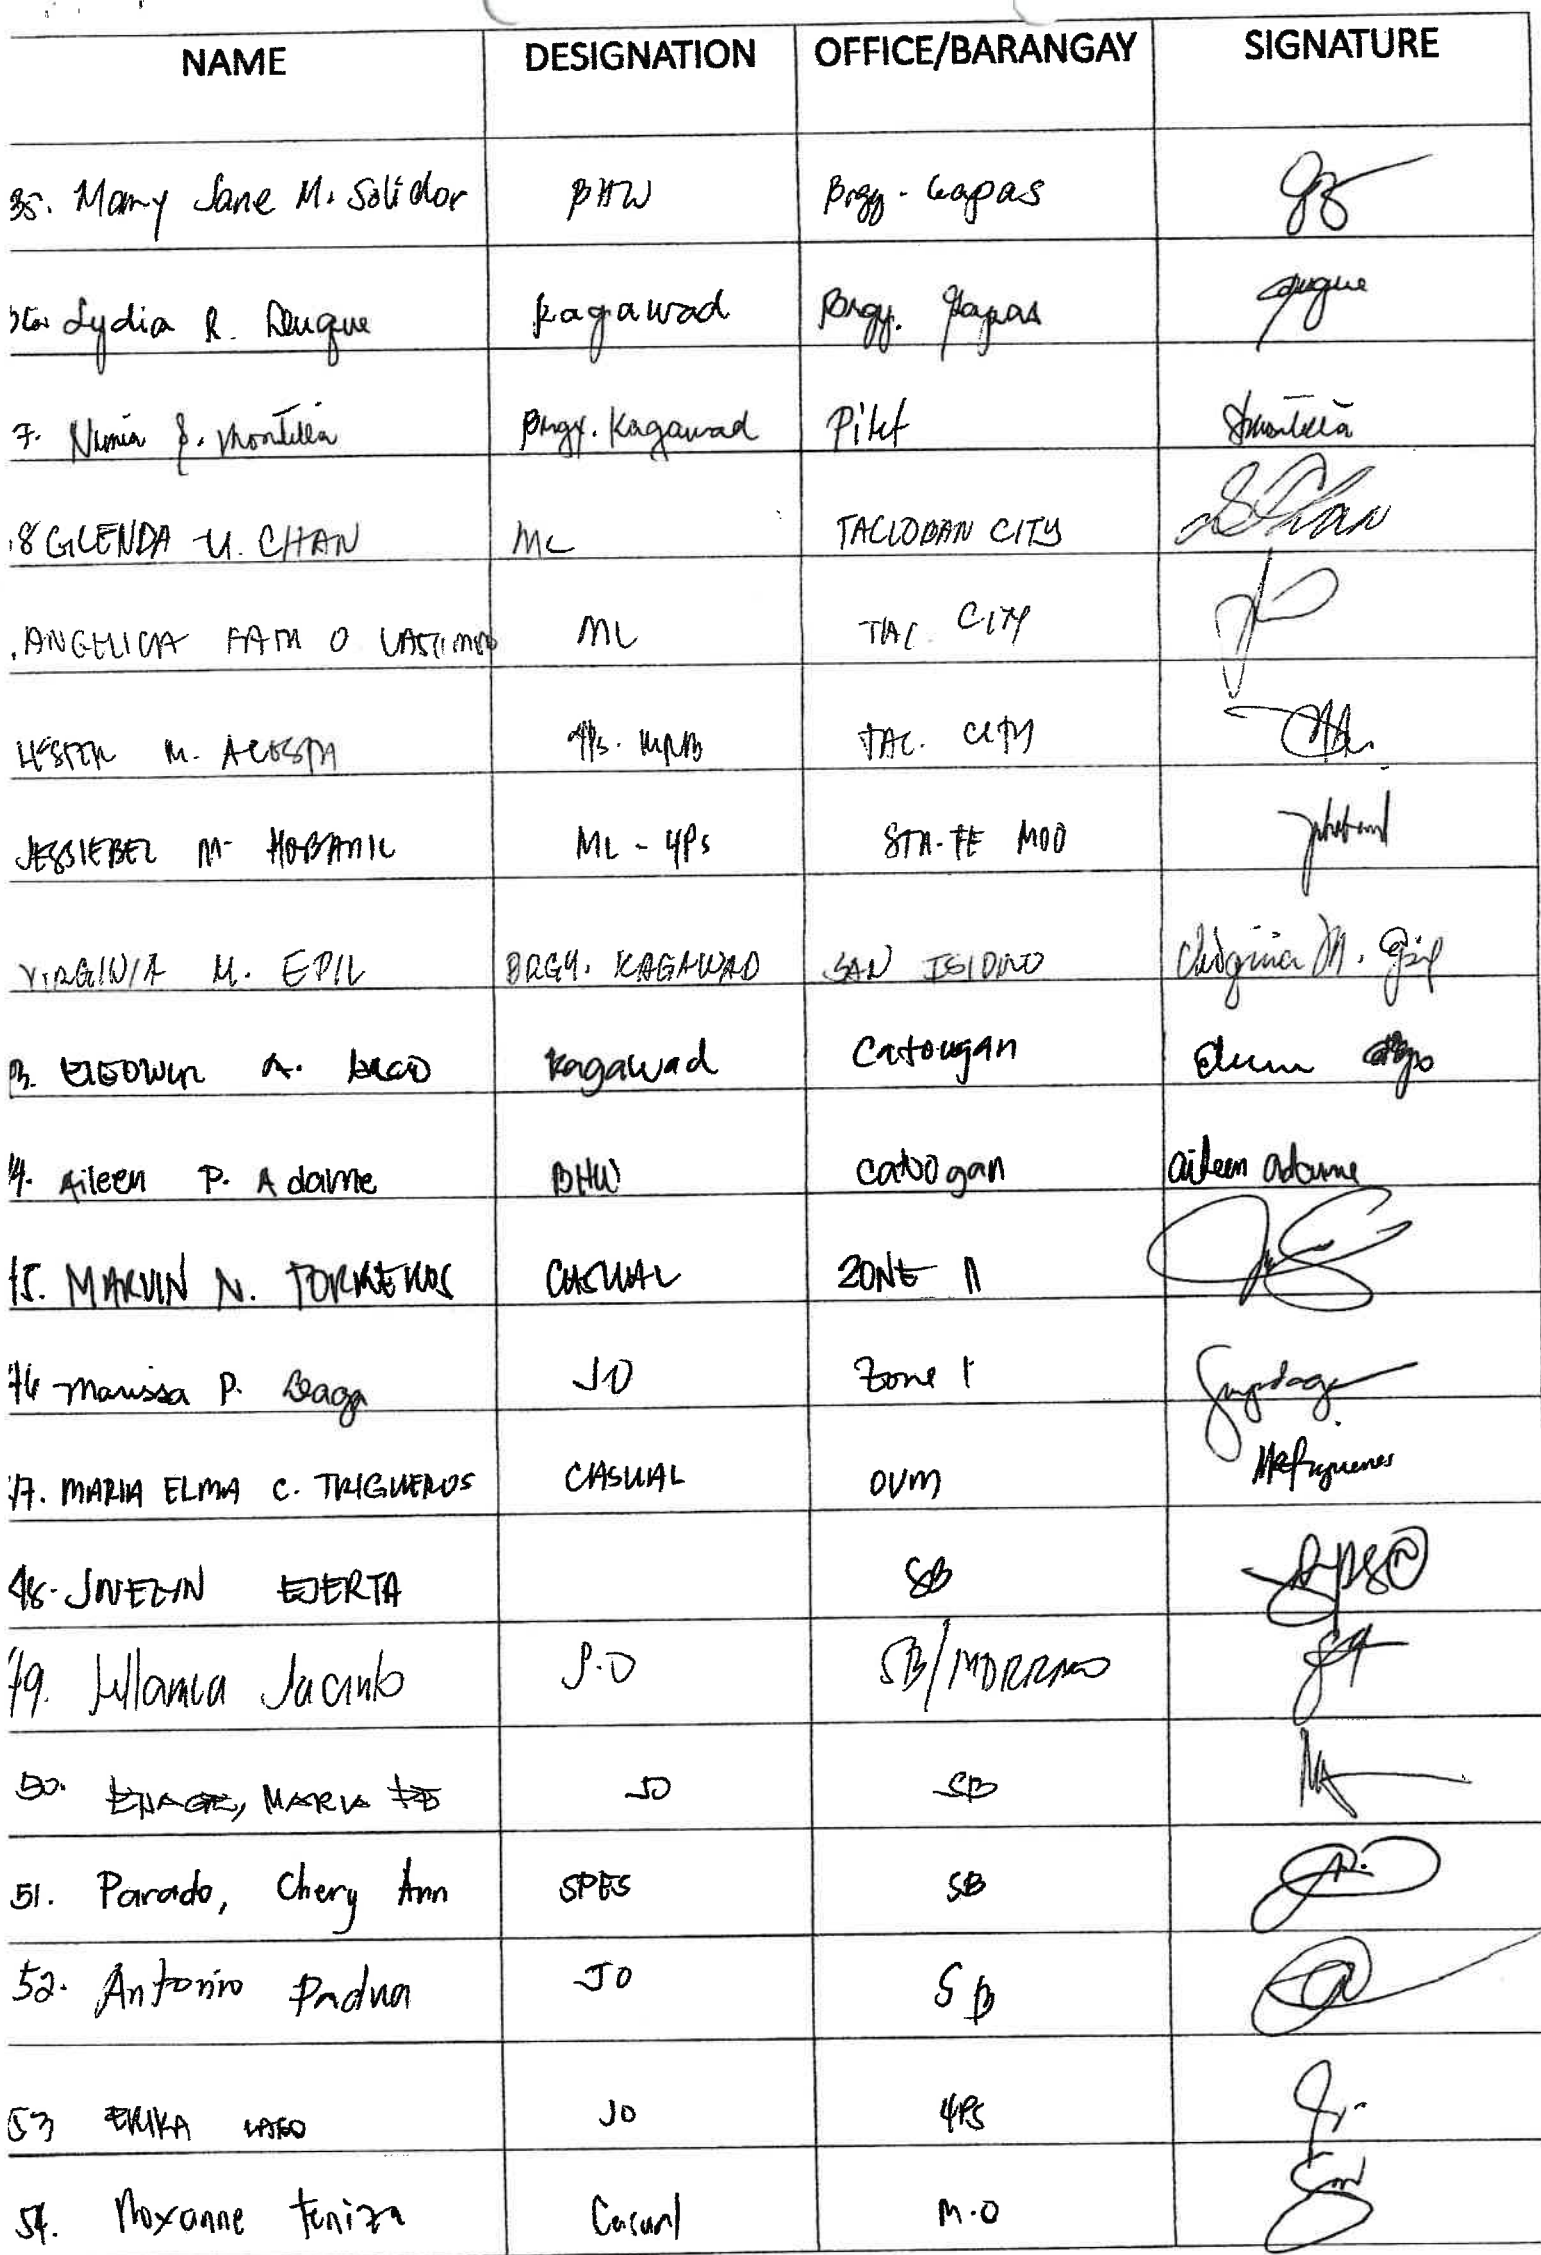 NAME DESIGNATION OFFICE/BARANGAY SIGNATURE
35. Mary Jane M. Solidor BHW Brgy. Gapas
Lydia R. Duque Kagawad Brgy. Gapas
7. Nimia Montilla Brgy. Kagawad Pilit
8 GLENDA U. CHAN ML TACLOBAN CITY
ANGELICA FAITH O ML TAC. CITY
LESTER M. ACOSTA 4Ps. TAC. CITY
JESSIEBEL M. HOBAYAN ML - 4Ps STA. FE MOO
VIRGINIA M. EPIL BRGY. KAGAWAD SAN ISIDRO Virginia M. Epil
3. A. Kagawad Catougan
4. Aileen P. Adame BHW Catoogan aileen adame
45. MARVIN N. TORREROS CASUAL ZONE II
46 Marissa P. JO Zone 1
47. MARIA ELMA C. TRIGUEROS CASUAL OVM
48. JOVELYN EJERTA SB
49. Jacinto J.O SB/MDRRMO
50. ENAGE, MARIA FE JO SB
51. Parado, Chery Ann SPES SB
52. Antonio Padua JO SB
53 ERIKA JO 4PS
54. Roxanne Teniza Casual M.O